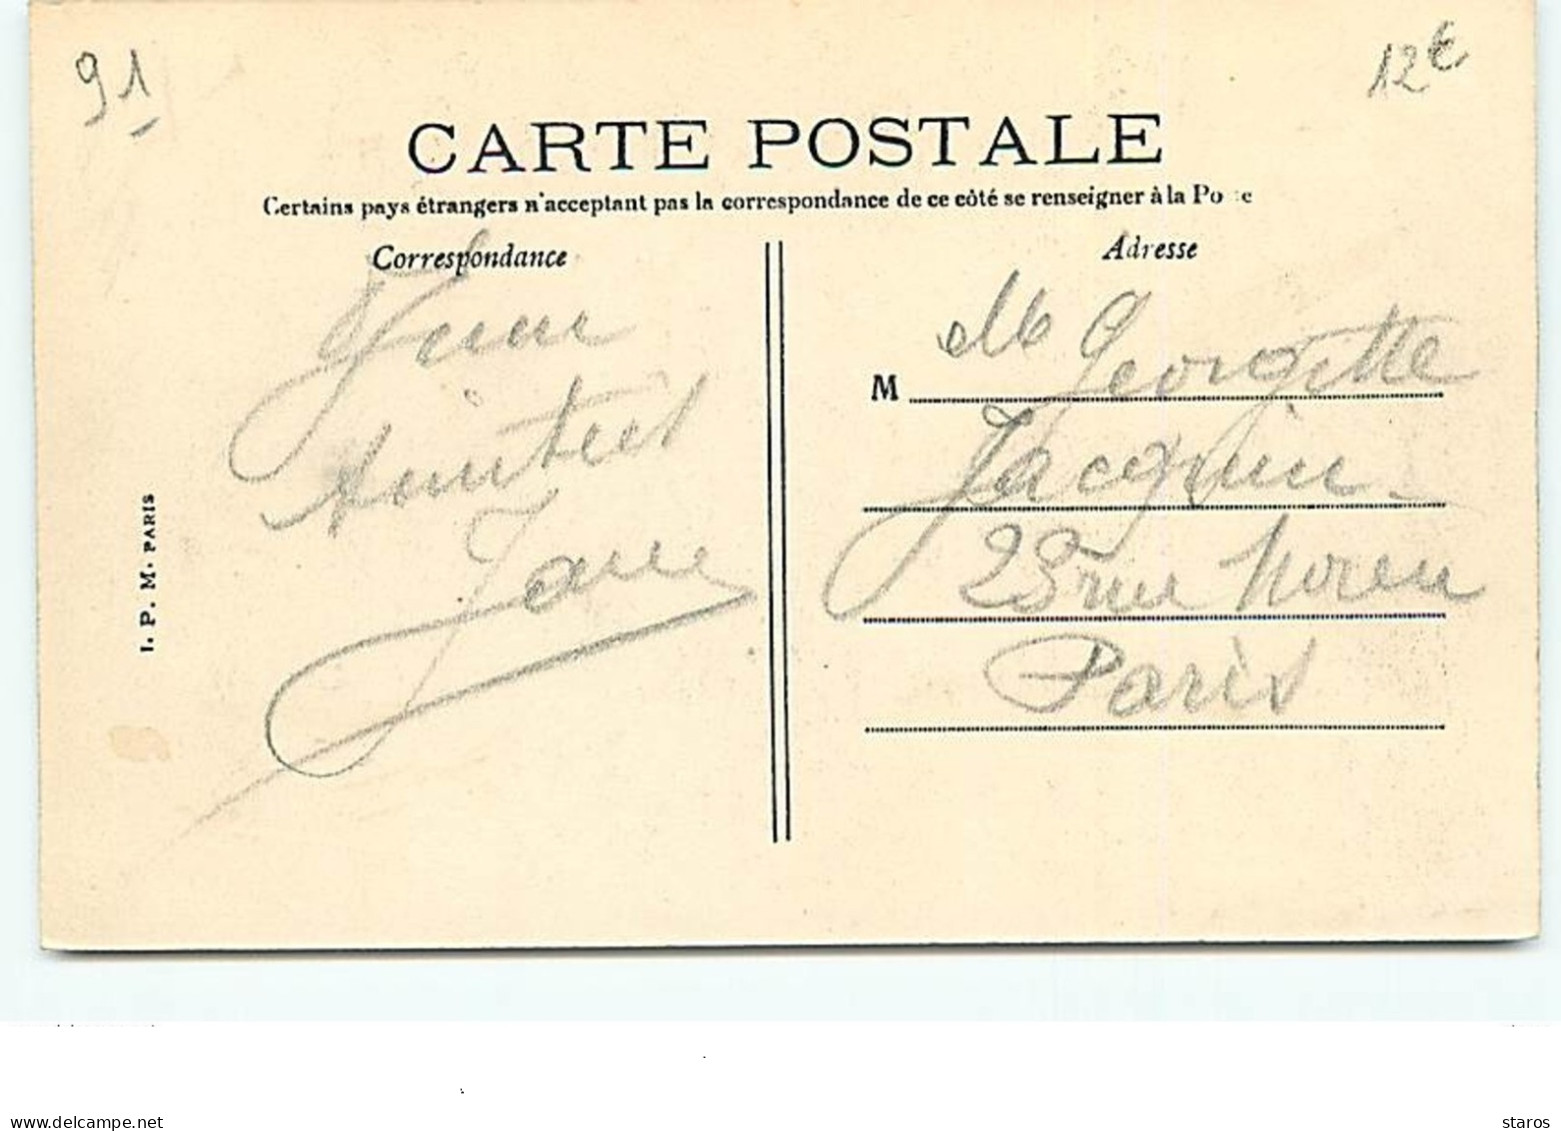 91
12€
CARTE POSTALE
Certains pays étrangers n'acceptant pas la correspondance de ce côté se renseigner à la Po te
Correspondance
Adresse
Mlle Georgette
M
Jacquin
23 rue
Paris
I. P. M. PARIS
www.delcampe.net
staros